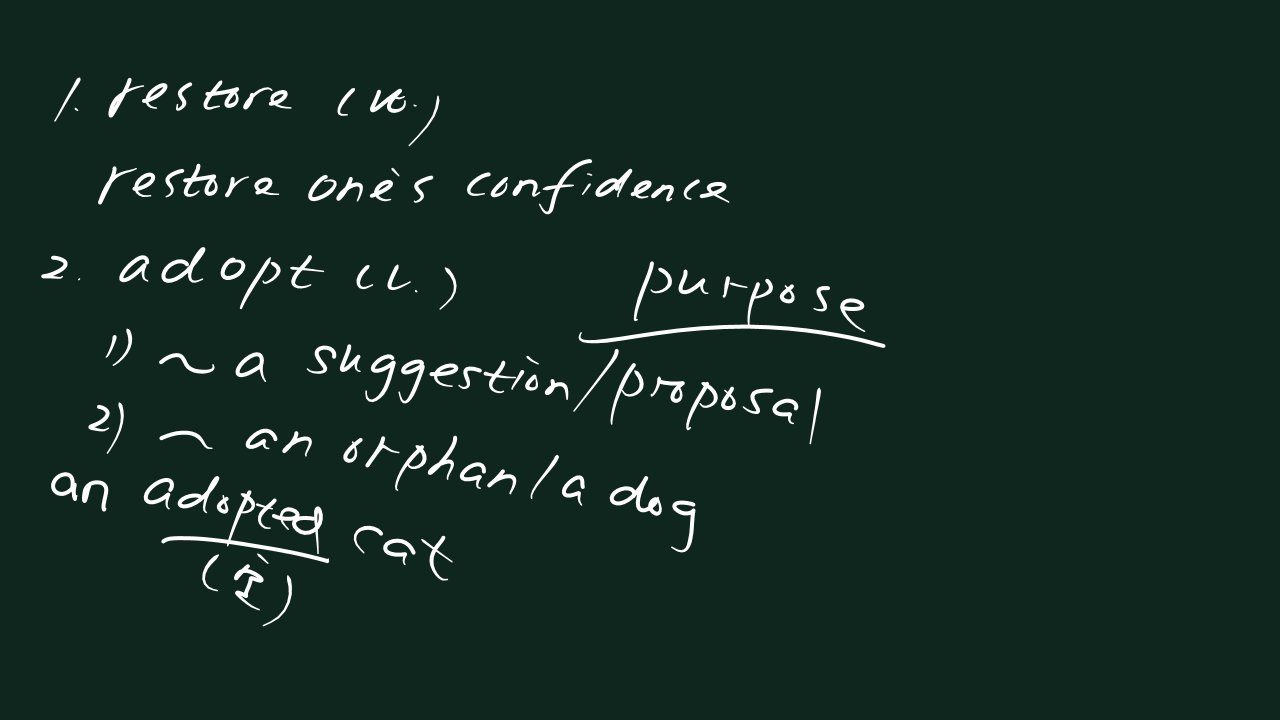 1. restore (v.)
restore one's confidence
2. adopt (v.)
purpose
1) ~ a suggestion/proposal
2) ~ an orphan/a dog
an adopted cat